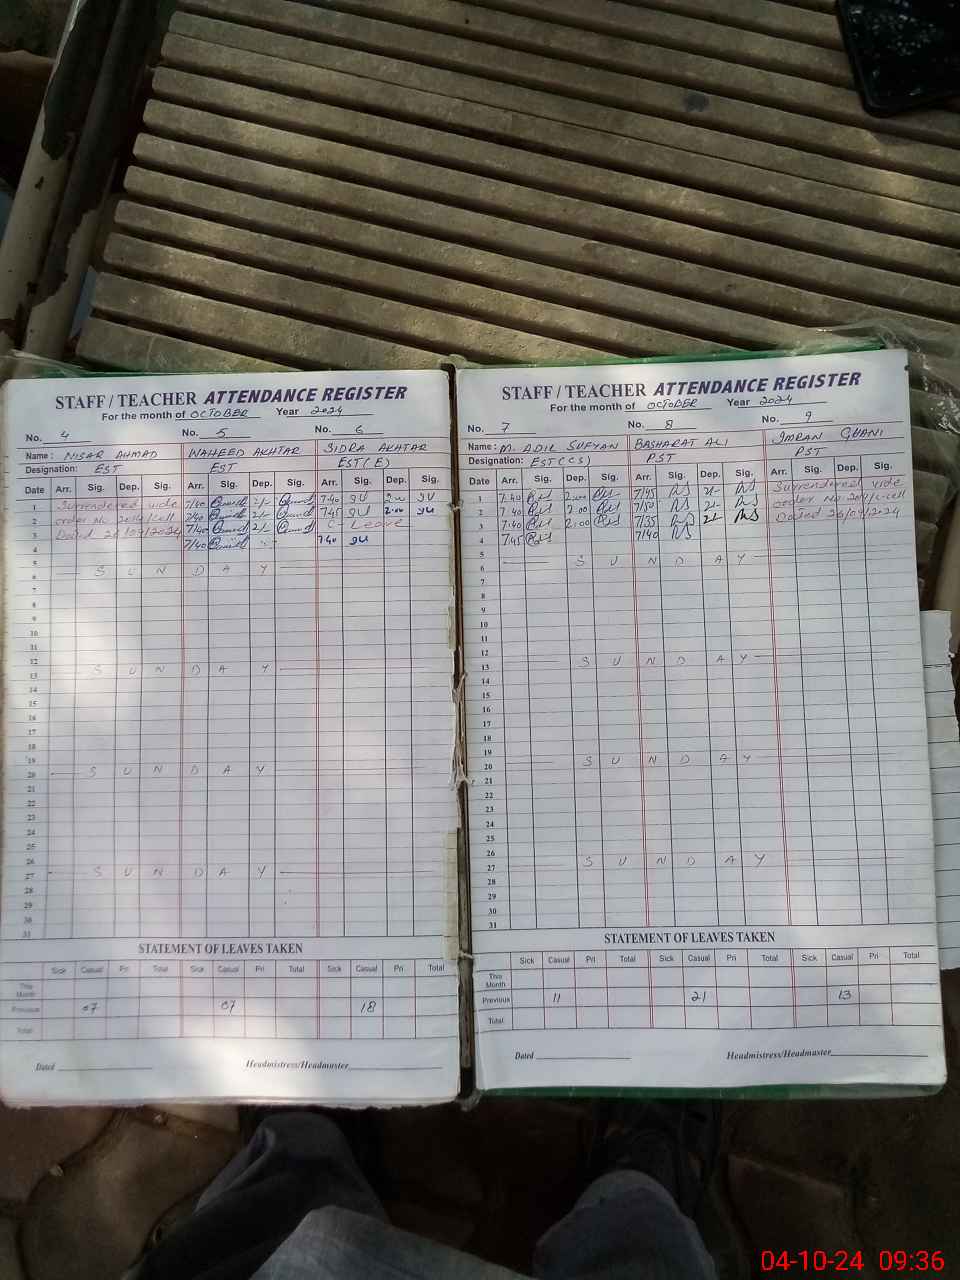 STAFF / TEACHER ATTENDANCE REGISTER
For the month of OCTOBER Year 2024
No. 4 No. 5 No. 6
Name : NISAR AHMAD WAHEED AKHTAR SIDRA AKHTAR
Designation: EST EST EST(E)
Date Arr. Sig. Dep. Sig. Arr. Sig. Dep. Sig. Arr. Sig. Dep. Sig.
1 Surrendered vide 7/40 2/- 7:40 2:00
2 order No 2014/cell 7/40 2/- 7:45 2:00
3 Dated 26/09/2024 7/40 2/- C - Leave
4 7/40 7:40
5
6 S U N D A Y
7
8
9
10
11
12
13 S U N D A Y
14
15
16
17
18
19
20 S U N D A Y
21
22
23
24
25
26
27 S U N D A Y
28
29
30
31
STATEMENT OF LEAVES TAKEN
Sick Casual Pri Total Sick Casual Pri Total Sick Casual Pri Total
This Month
Previous 07 07 18
Total
Dated Headmistress/Headmaster
STAFF / TEACHER ATTENDANCE REGISTER
For the month of OCTOBER Year 2024
No. 7 No. 8 No. 9
Name : M. ADIL SUFYAN BASHARAT ALI IMRAN GHANI
Designation: EST(CS) PST PST
Date Arr. Sig. Dep. Sig. Arr. Sig. Dep. Sig. Arr. Sig. Dep. Sig.
1 7:40 2:00 7/45 2/- Surrendered vide
2 7:40 2:00 7/50 2/- order No 2014/cell
3 7:40 2:00 7/35 2/- Dated 26/09/2024
4 7:45 7/40
5
6 S U N D A Y
7
8
9
10
11
12
13 S U N D A Y
14
15
16
17
18
19
20 S U N D A Y
21
22
23
24
25
26
27 S U N D A Y
28
29
30
31
STATEMENT OF LEAVES TAKEN
Sick Casual Pri Total Sick Casual Pri Total Sick Casual Pri Total
This Month
Previous 11 21 13
Total
Dated Headmistress/Headmaster
04-10-24 09:36